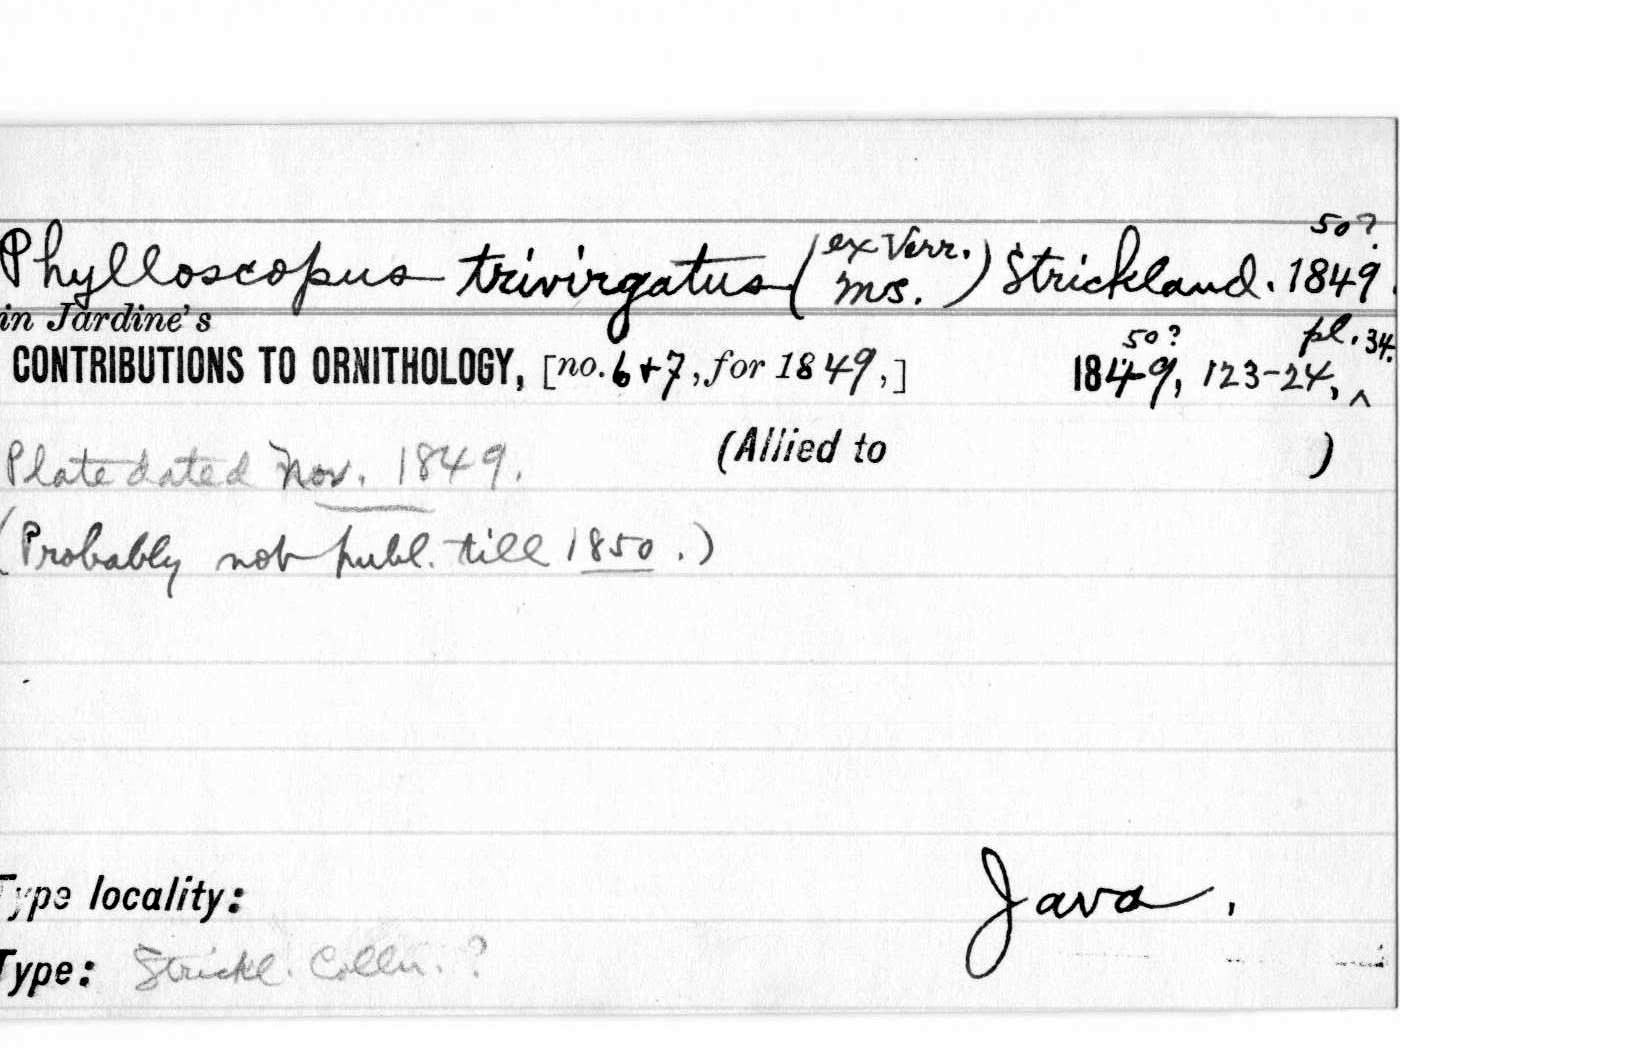 50?
Phylloscopus trivirgatus (ex Verr. ms.) Strickland. 1849.
in Jardine's
50? pl. 34.
CONTRIBUTIONS TO ORNITHOLOGY, [no. 6+7, for 1849,] 1849, 123-24, ^
Plate dated Nov. 1849. (Allied to )
(Probably not publ. till 1850.)
Type locality: Java.
Type: Strickl. Colln. ?